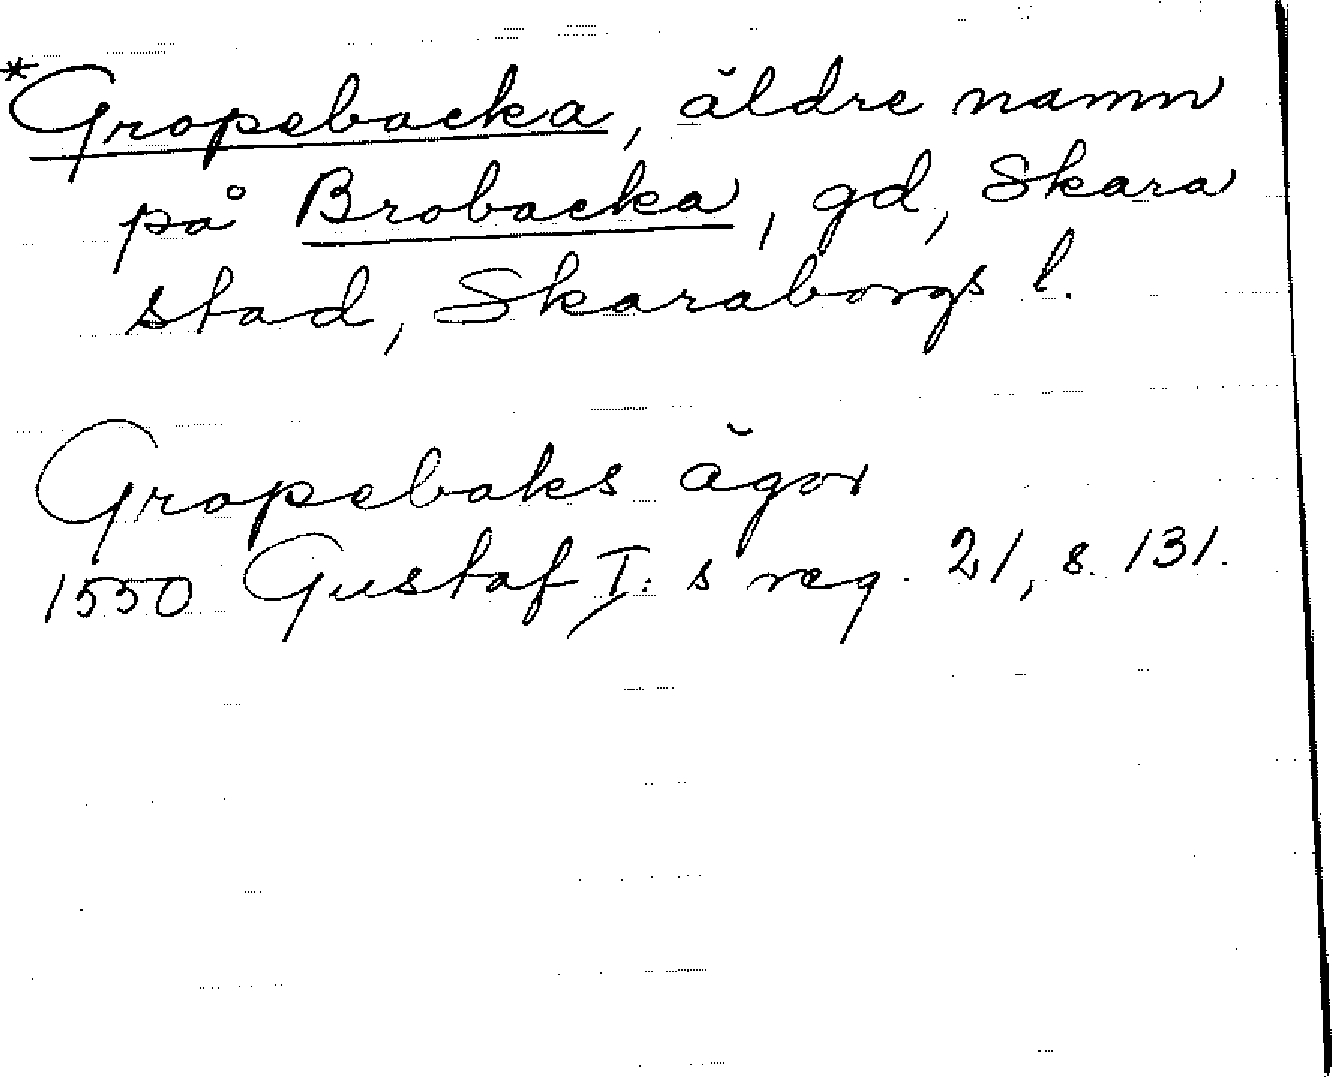 *Gropebacka, äldre namn
på Brobacka, gd, Skara
stad, Skaraborgs l.
Gropebaks ägor
1550 Gustaf I: s reg. 21, s. 131.